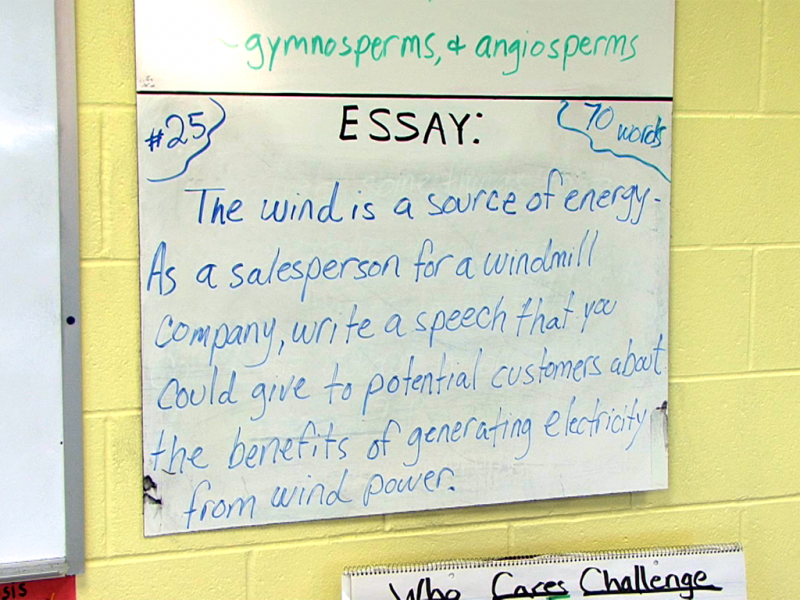 ~gymnosperms, & angiosperms
#25
ESSAY:
70 words
The wind is a source of energy.
As a salesperson for a windmill
company, write a speech that you
could give to potential customers about
the benefits of generating electricity
from wind power.
Who Cares Challenge
SIS